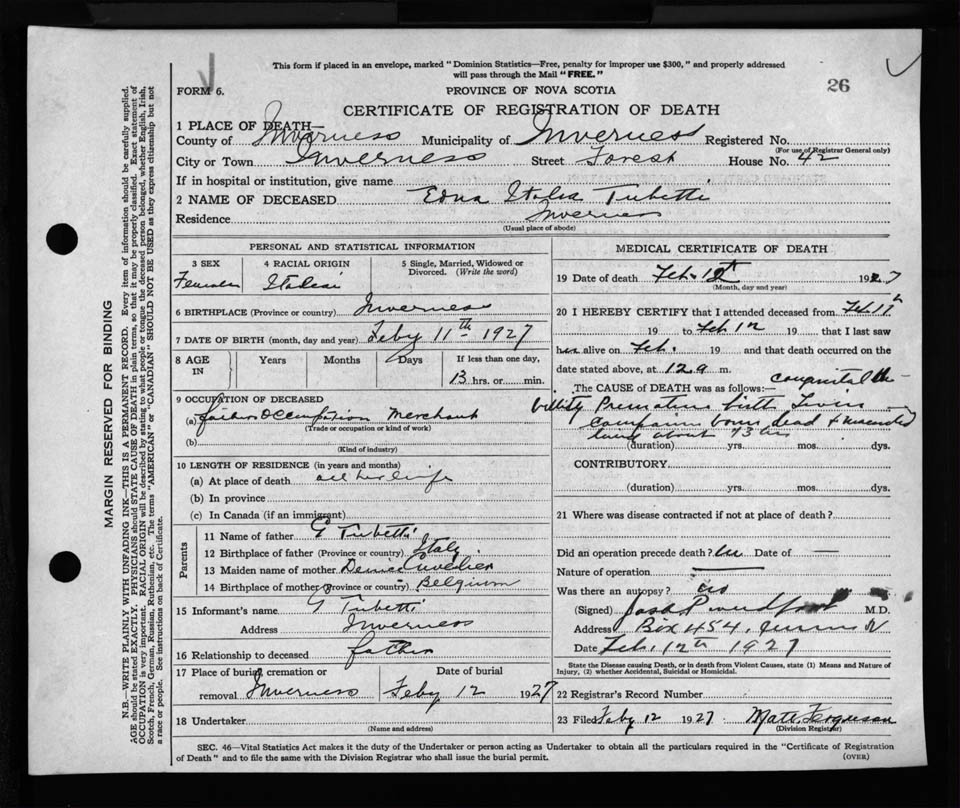 This form if placed in an envelope, marked "Dominion Statistics—Free, penalty for improper use $300," and properly addressed
will pass through the Mail "FREE."
FORM 6.
PROVINCE OF NOVA SCOTIA
26
CERTIFICATE OF REGISTRATION OF DEATH
1 PLACE OF DEATH—
County of Inverness Municipality of Inverness Registered No.
(For use of Registrar General only)
City or Town Inverness Street Forest House No. 42
If in hospital or institution, give name
2 NAME OF DECEASED Edna Italia Tubetti
Residence Inverness
(Usual place of abode)
PERSONAL AND STATISTICAL INFORMATION
3 SEX 4 RACIAL ORIGIN 5 Single, Married, Widowed or
Divorced. (Write the word)
Female
6 BIRTHPLACE (Province or country) Inverness
7 DATE OF BIRTH (month, day and year) Feby 11th 1927
8 AGE Years Months Days If less than one day,
IN 13 hrs. or min.
9 OCCUPATION OF DECEASED
(a) father Occupation Merchant
(Trade or occupation or kind of work)
(b)
(Kind of industry)
10 LENGTH OF RESIDENCE (in years and months)
(a) At place of death all her life
(b) In province
(c) In Canada (if an immigrant)
Parents
11 Name of father G Tubetti
12 Birthplace of father (Province or country) Italy
13 Maiden name of mother
14 Birthplace of mother (Province or country) Belgium
15 Informant's name G Tubetti
Address Inverness
16 Relationship to deceased father
17 Place of burial, cremation or Date of burial
removal Inverness Feby 12 1927
18 Undertaker
(Name and address)
MEDICAL CERTIFICATE OF DEATH
19 Date of death Feb. 12th 1927
(Month, day and year)
20 I HEREBY CERTIFY that I attended deceased from Feb 11th
19 to Feb 12 19 that I last saw
her alive on Feb. 19 and that death occurred on the
date stated above, at 12 a m.
The CAUSE of DEATH was as follows:— congenital de-
bility Premature birth Twin
companion born dead & macerated
lived about 13 hrs
(duration) yrs. mos. dys.
CONTRIBUTORY
(duration) yrs. mos. dys.
21 Where was disease contracted if not at place of death?
Did an operation precede death? no Date of —
Nature of operation —
Was there an autopsy? no
(Signed) M.D.
Address Box 454, N
Date Feb. 12th 1927
State the Disease causing Death, or in death from Violent Causes, state (1) Means and Nature of
Injury, (2) whether Accidental, Suicidal or Homicidal.
22 Registrar's Record Number
23 Filed Feby 12 1927 Matt. Ferguson
(Division Registrar)
SEC. 46—Vital Statistics Act makes it the duty of the Undertaker or person acting as Undertaker to obtain all the particulars required in the "Certificate of Registration
of Death" and to file the same with the Division Registrar who shall issue the burial permit.
(OVER)
MARGIN RESERVED FOR BINDING
N.B.—WRITE PLAINLY WITH UNFADING INK—THIS IS A PERMANENT RECORD. Every item of information should be carefully supplied.
AGE should be stated EXACTLY. PHYSICIANS should STATE CAUSE OF DEATH in plain terms, so that it may be properly classified. Exact statement of
OCCUPATION is very important. RACIAL ORIGIN will be described by stating to what people or tongue the deceased person belonged, whether English, Irish,
Scotch, French, German, Russian, Ruthenian, etc. The terms "AMERICAN" or "CANADIAN" SHOULD NOT BE USED as they express citizenship but not
a race or people. See instructions on back of Certificate.